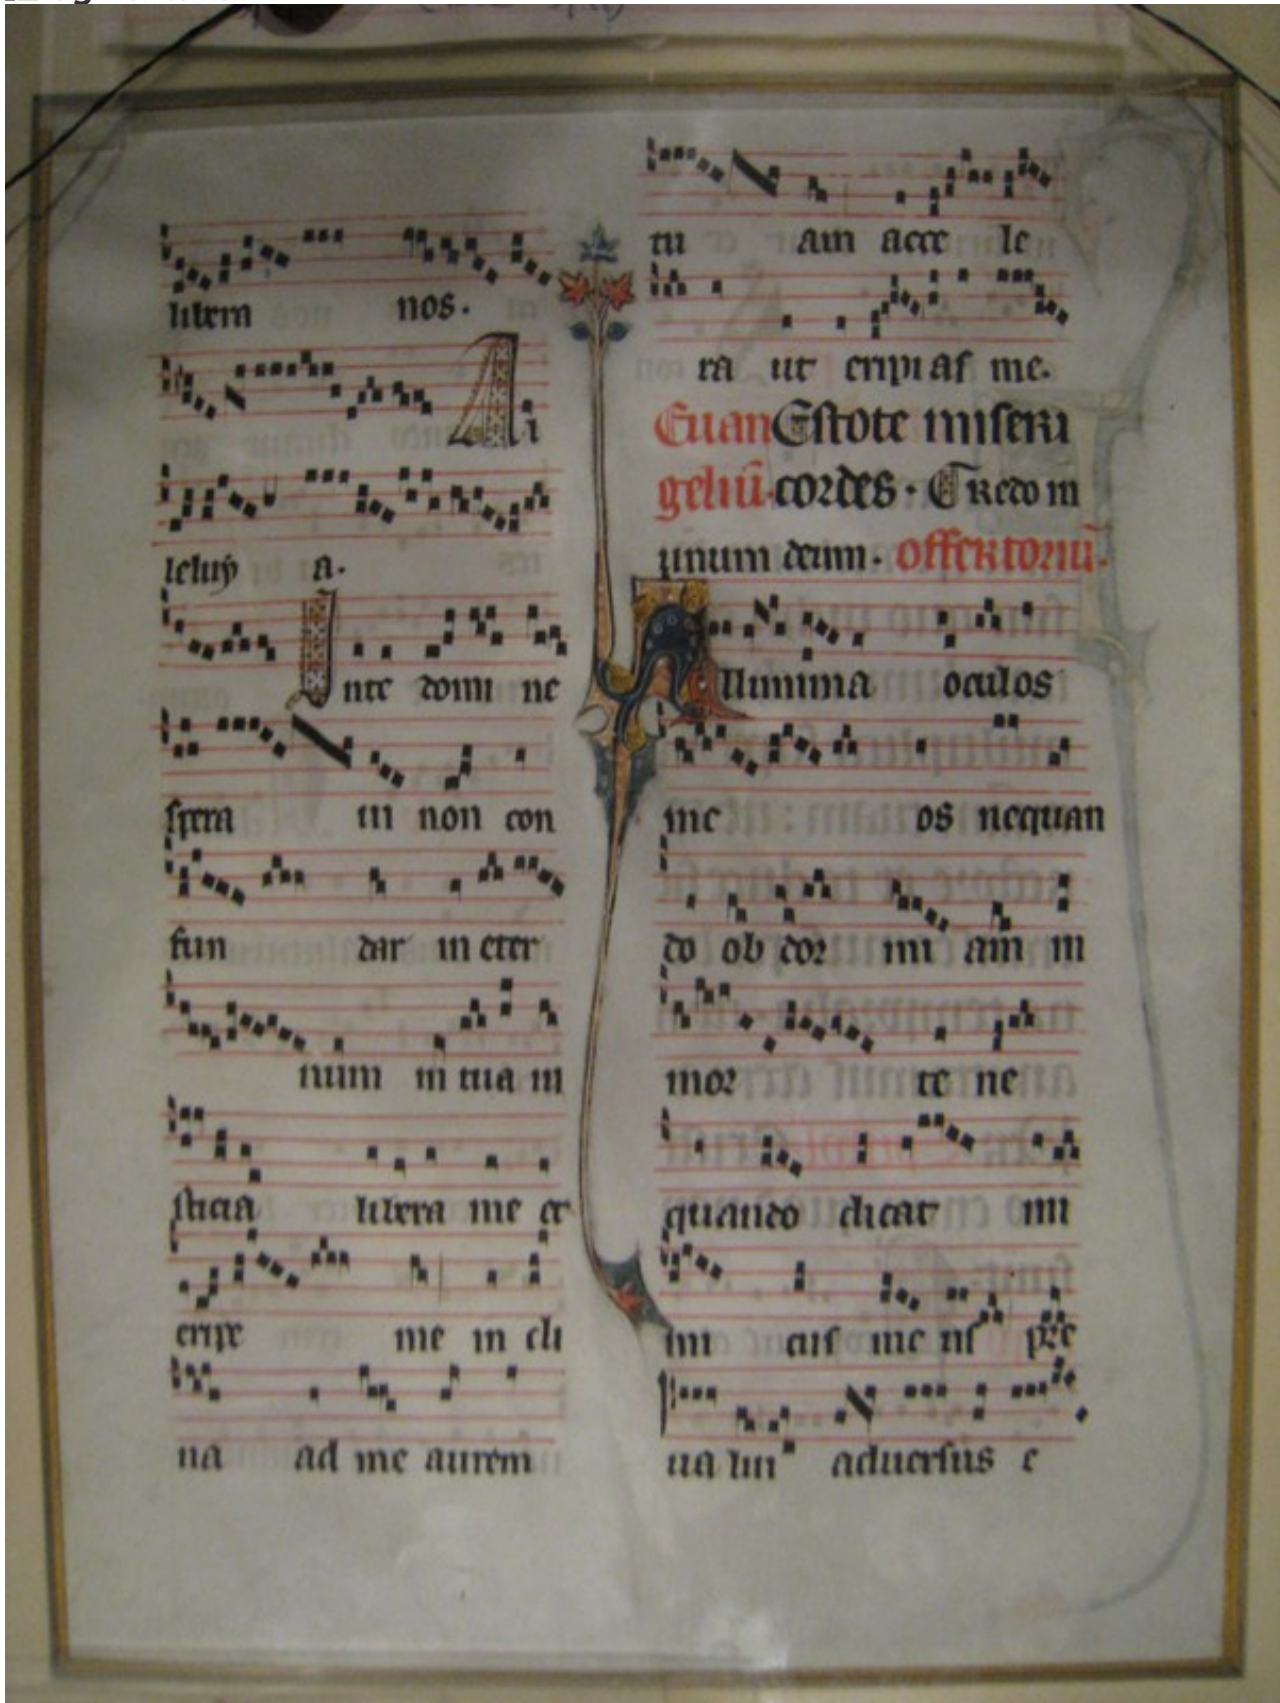 libera nos.
Al
leluy a.
In te domi ne
spera ui non con
fun dar in eter
num in tua iu
sticia libera me et
eripe me in cli
na ad me aurem
tu am acce le
ra ut eripi as me.
Euan Estote miseri
geliū. cordes. Credo in
unum deum. offertoriū.
Illumina oculos
me os nequan
do ob dor mi am in
mor te ne
quando dicat ini
mi cus me us pre
ua lui aduersus e